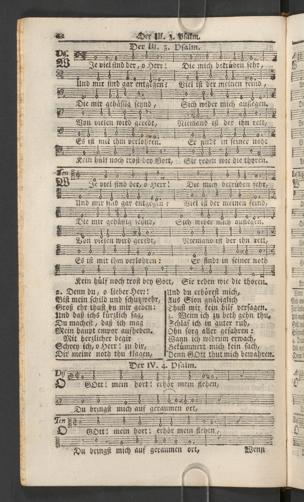 Der III. 3. Psalm.
Der III. 3. Psalm.
Wie viel sind der, o Herr! Die mich betrüben sehr,
Und mir sind gar entgegen! Viel ist der meinen feind,
Die mir gehäßig seynd, Sich wider mich auflegen.
Von vielen wird geredt, Niemand ist der ihn rett,
Es ist mit ihm verlohren. Er findt in seiner noht
Kein hülf noch trost bey Gott, Sie reden wie die thoren.
Ten
Wie viel sind der, o Herr! Die mich betrüben sehr,
Und mir sind gar entgegen! Viel ist der meinen feind,
Die mir gehäßig seynd, Sich wider mich auflegen.
Von vielen wird geredt, Niemand ist der ihn rett,
Es ist mit ihm verlohren: Er findt in seiner noht
Kein hülf noch trost bey Gott, Sie reden wie die thoren.
2. Denn du, o lieber Herr!
Bist mein schild und schutzwehr,
Groß ehr thust du mir geben:
Und daß ichs kürzlich sag,
Du machest, daß ich mag
Mein haupt empor aufheben.
Mit herzlicher begir
Schrey ich, o Herr! zu dir,
Dir meine noht thu klagen,
Und du erhörest mich,
Aus Sion gnädiglich
Thust mir kein hilf versagen.
3. Wenn ich zu beth gehn thu,
Schlaf ich in guter ruh,
Ohn sorg aller gefahren:
Wann ich widerum erwach,
Bekümmert mich kein sach,
Denn GOtt thut mich bewahren.
Der IV. 4. Psalm.
O GOtt! mein hort! erhör mein flehen,
Du bringst mich auf geraumen ort,
Ten
O GOtt! mein hort! erhör mein flehen,
Du bringst mich auf geraumen ort, Wenn